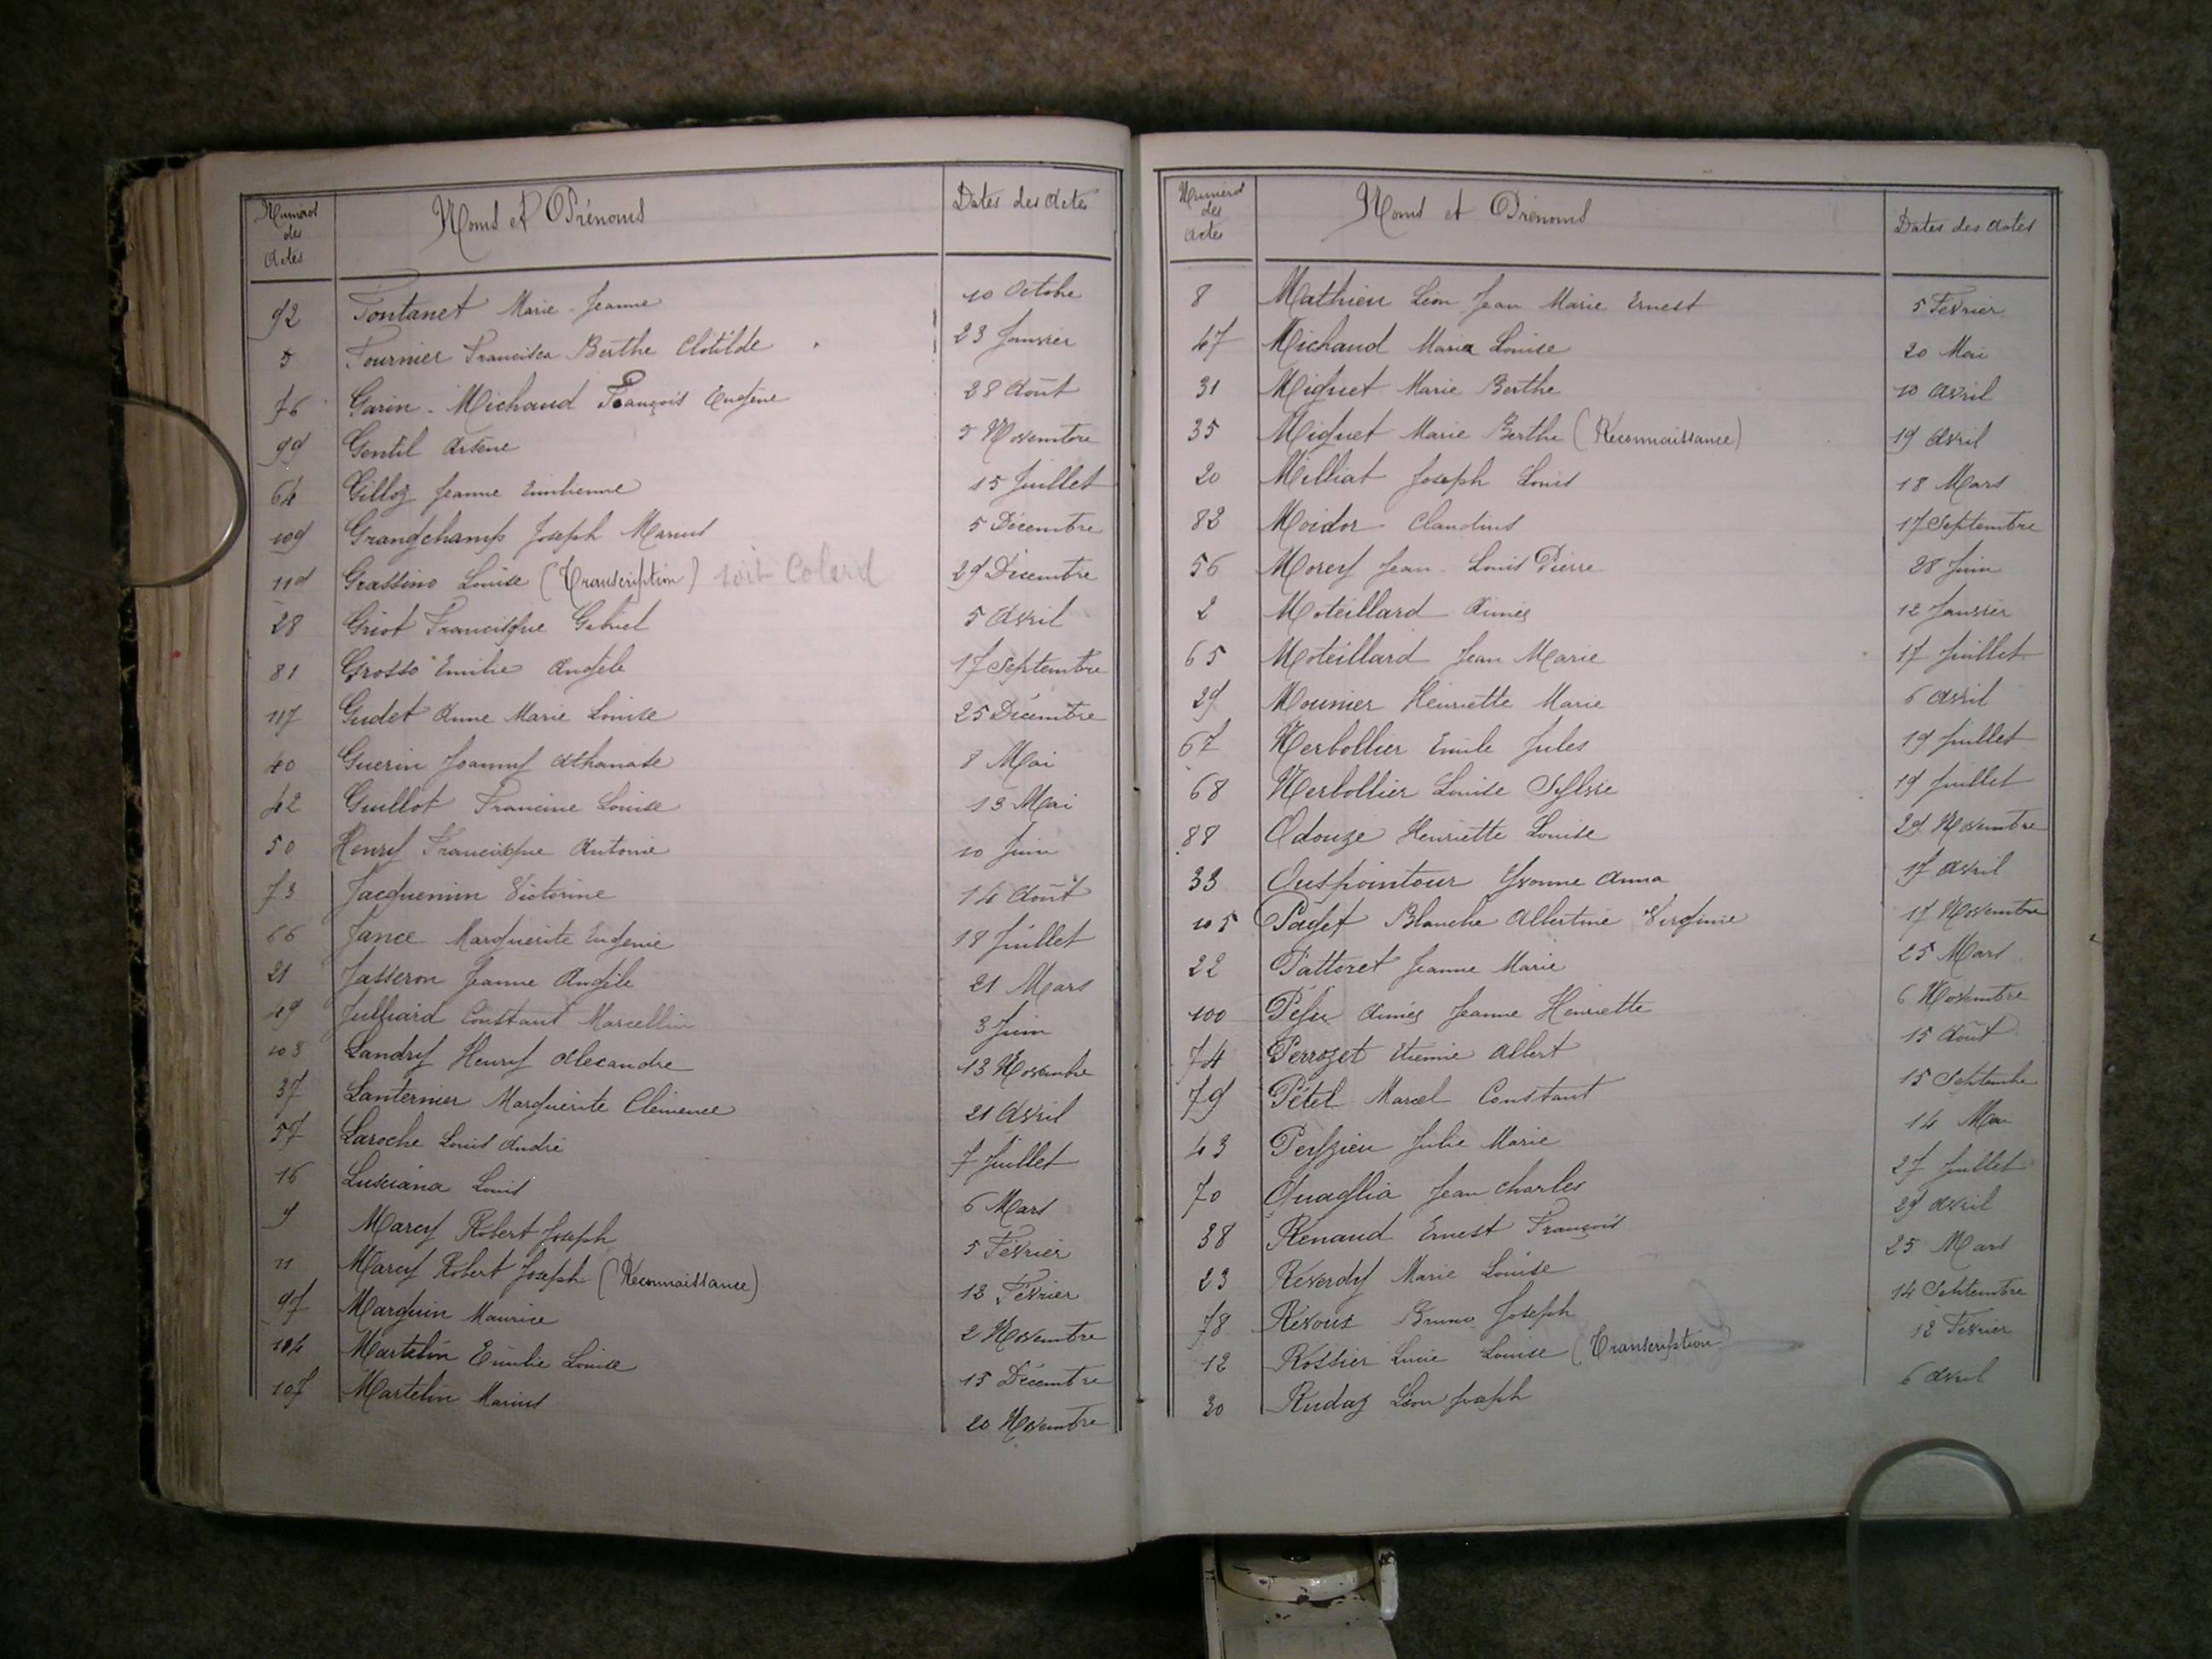 Numéros des Actes Noms et Prénoms Dates des Actes
92 Fontanet Marie-Jeanne 10 Octobre
5 Fournier Francisca Berthe Clotilde 23 Janvier
76 Garin-Michaud François Eugène 28 Août
99 Gentil Arsène 5 Novembre
64 Gilloz Jeanne Emilienne 15 Juillet
109 Grangchamp Joseph Marius 5 Décembre
119 Grassino Louise (Transcription) soit Colard 29 Décembre
28 Griot Francisque Gabriel 5 Avril
81 Grosso Emilie Angèle 17 Septembre
117 Gudet Anne Marie Louise 25 Décembre
40 Guerin Joanny Athanase 8 Mai
42 Guillot Francine Louise 13 Mai
50 Henry Francisque Antoine 10 Juin
73 Jacquemin Victorine 14 Août
66 Jance Marguerite Eugénie 18 Juillet
21 Jasseron Jeanne Angèle 21 Mars
49 Julliard Constant Marcellin 3 Juin
103 Landry Henry Alexandre 13 Novembre
37 Lanternier Marguerite Clémence 21 Avril
57 Laroche Louis André 7 Juillet
16 Lusciana Louis 6 Mars
9 Marcy Robert Joseph 5 Février
11 Marcy Robert Joseph (Reconnaissance) 12 Février
97 Marguin Maurice 2 Novembre
114 Martelin Emilie Louise 15 Décembre
107 Martelin Marius 20 Novembre
Numéros des Actes Noms et Prénoms Dates des Actes
8 Mathieu Léon Jean Marie Ernest 5 Février
47 Michaud Maria Louise 20 Mai
31 Miguet Marie Berthe 10 Avril
35 Miguet Marie Berthe (Reconnaissance) 19 Avril
20 Milliat Joseph Louis 18 Mars
82 Moidor Claudius 17 Septembre
56 Morey Jean-Louis Pierre 28 Juin
2 Moteillard Aimée 12 Janvier
65 Moteillard Jean Marie 17 Juillet
29 Mounier Henriette Marie 6 Avril
67 Nerbollier Emile Jules 19 Juillet
68 Nerbollier Louise Sylvie 19 Juillet
88 Odouze Henriette Louise 29 Novembre
33 Ouspointour Yvonne Anna 17 Avril
105 Paget Blanche Albertine Virginie 17 Novembre
22 Pattoret Jeanne Marie 25 Mars
100 Péju Aimée Jeanne Henriette 6 Novembre
74 Perrozet Etienne Albert 15 Août
79 Pétel Marcel Constant 15 Septembre
43 Peyzieu Julie Marie 14 Mai
70 Quaglia Jean Charles 27 Juillet
38 Renaud Ernest François 29 Avril
23 Reverdy Marie Louise 25 Mars
78 Revoux Bruno Joseph 14 Septembre
12 Rossier Lucie Louise (Transcription) 12 Février
30 Rudaz Léon Joseph 6 Avril